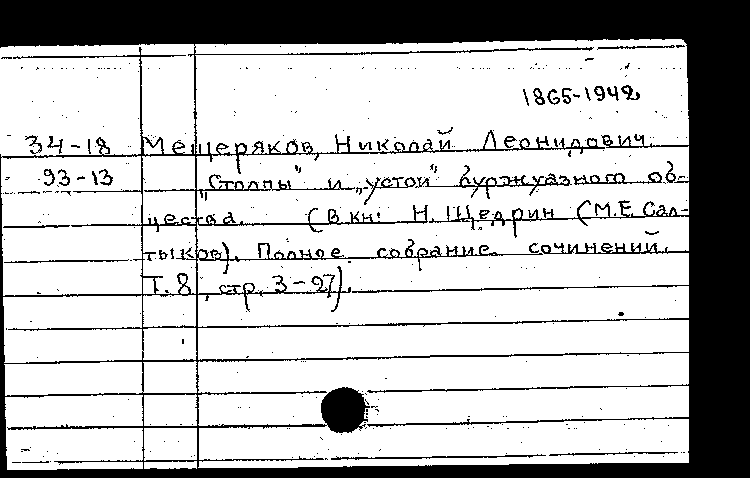 1865-1942
34-18 Мещеряков, Николай Леонидович.
93-13 „Столпы" и „устои" буржуазного об-
щества. (В кн: Н. Щедрин (М.Е. Сал-
тыков). Полное собрание сочинений.
Т. 8, стр. 3-27).